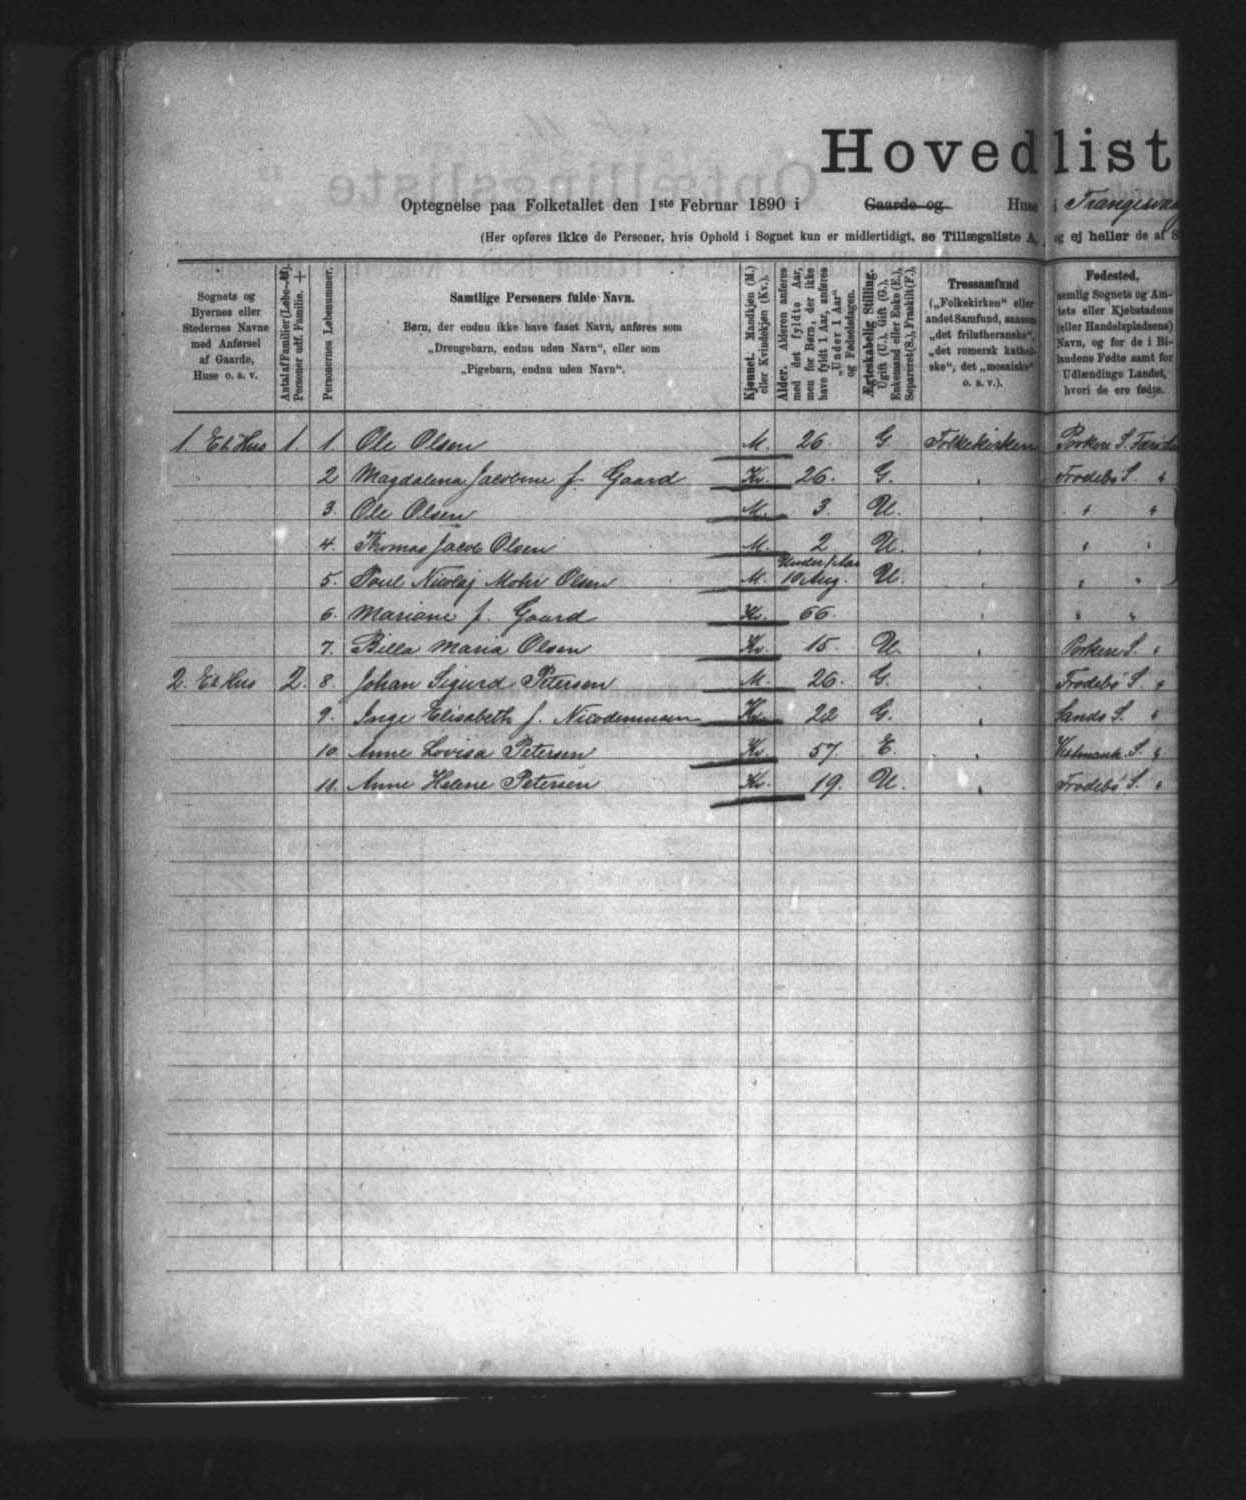 Hovedlist
Optegnelse paa Folketallet den 1ste Februar 1890 i Gaarde og Huse i Trangisvaag
(Her opføres ikke de Personer, hvis Ophold i Sognet kun er midlertidigt, se Tillægsliste A, og ej heller de af
Sognets og Byernes eller Stedernes Navne med Anførsel af Gaarde, Huse o. s. v.
Antal af Familier (Løbe-№). Personer udf. Familie. +
Personernes Løbenummer.
Samtlige Personers fulde Navn.
Børn, der endnu ikke have faaet Navn, anføres som
„Drengebarn, endnu uden Navn“, eller som
„Pigebarn, endnu uden Navn“.
Kjønnet. Mandkjøn (M.) eller Kvindekjøn (Kv.).
Alder. Alderen anføres med det fyldte Aar, men for Børn, der ikke have fyldt 1 Aar, anføres „Under 1 Aar“ og Fødselsdagen.
Ægteskabelig Stilling. Ugift (U.), Gift (G.), Enkemand eller Enke (E.), Separeret (S.), Fraskilt (F.).
Trossamfund („Folkekirken“ eller andet Samfund, saasom „det frilutheranske“, „det romersk katholske“, det „mosaiske“ o. s. v.).
Fødested, nemlig Sognets og Amtets eller Kjøbstadens (eller Handelspladsens) Navn, og for de i Bilandene Fødte samt for Udlændinge Landet, hvori de ere fødte.
1. Et Hus 1. 1. Ole Olsen M. 26. G Folkekirken Porkere S. Færø
2 Magdalena Jacobine f. Gaard Kv. 26. G. " Frodebø S. "
3. Ole Olsen M. 3. U. " " "
4. Thomas Jacob Olsen M. 2 U. " " "
5. Poul Nicolaj Mohr Olsen M. Under 1 Aar 10 Aug. U. " " "
6. Mariane f. Gaard Kv. 66. " "
7. Billa Maria Olsen Kv. 15. U. " Porkere S. "
2. Et Hus 2. 8. Johan Sigurd Petersen M. 26. G. " Frodebø S. "
9. Inge Elisabeth f. Nicodemusen Kv. 22 G. " Sands S. "
10. Anne Lovisa Petersen Kv. 57. E. " Vestmanh. S. "
11. Anne Helene Petersen Kv. 19. U. " Frodebø S. "